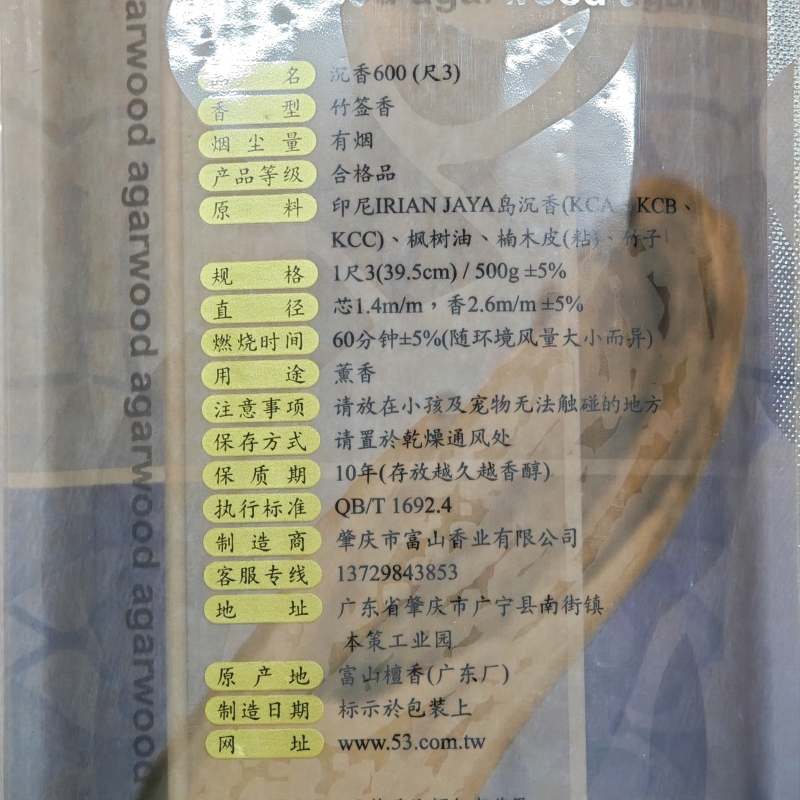 agarwood agarwood
agarwood agarwood agarwood agarwood agarwood
名 沉香600 (尺3)
香型 竹签香
烟尘量 有烟
产品等级 合格品
原料 印尼IRIAN JAYA岛沉香(KCA、KCB、
KCC)、枫树油、楠木皮(粘)、竹子
规格 1尺3(39.5cm) / 500g ±5%
直径 芯1.4m/m，香2.6m/m ±5%
燃烧时间 60分钟±5%(随环境风量大小而异)
用途 薰香
注意事项 请放在小孩及宠物无法触碰的地方
保存方式 请置於乾燥通风处
保质期 10年(存放越久越香醇)
执行标准 QB/T 1692.4
制造商 肇庆市富山香业有限公司
客服专线 13729843853
地址 广东省肇庆市广宁县南街镇
本策工业园
原产地 富山檀香(广东厂)
制造日期 标示於包装上
网址 www.53.com.tw